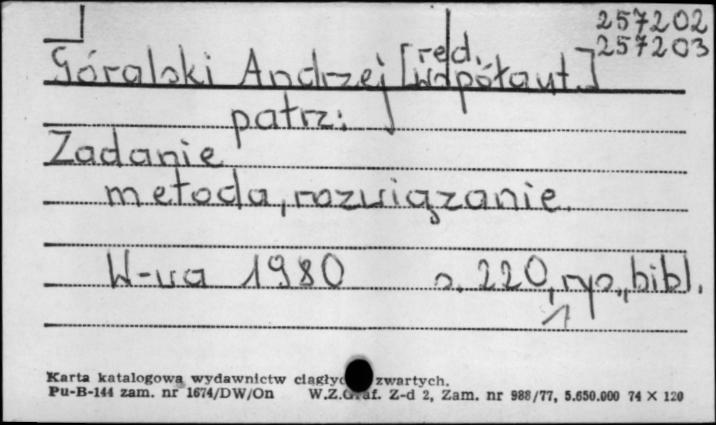 257202
257203
Góralski Andrzej [red. współaut.]
patrz:
Zadanie
metoda, rozwiązanie.
W-wa 1980 s. 220, rys., bibl.
Karta katalogowa wydawnictw zwartych.
Pu-B-144 zam. nr 1674/DW/On W.Z.Graf. Z-d 2, Zam. nr 988/77, 5.650.000 74 X 120